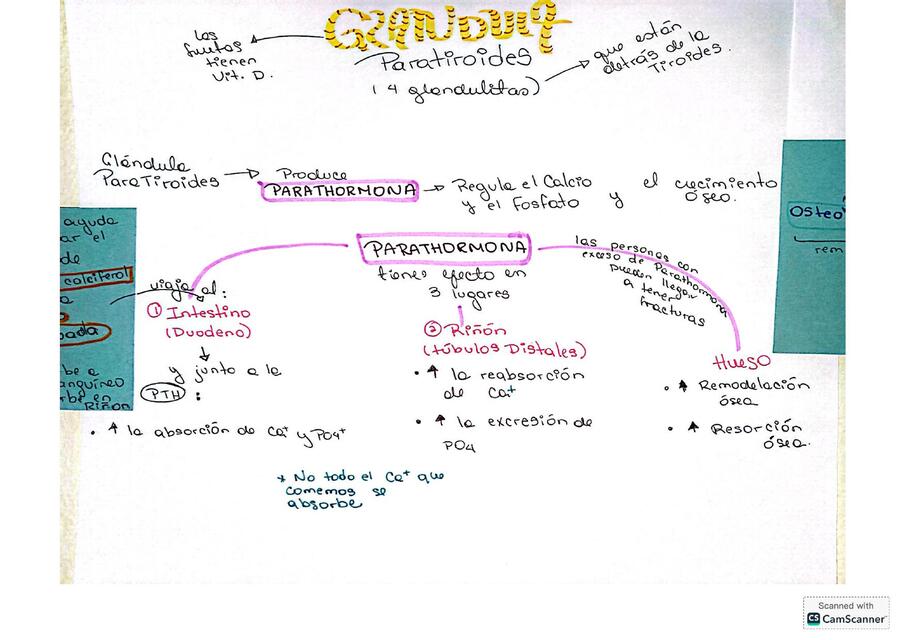 GLANDULA
Paratiroides
(4 glandulitas)
las
frutas
tienen
Vit. D.
que están
detrás de la
Tiroides.
Glándula
ParaTiroides
Produce
PARATHORMONA
Regula el Calcio
y el Fosfato
y
el crecimiento
óseo.
Osteo
rem
ayuda
ar el
de
calciferol
a
bada
be a
anguíneo
rbe en
Riñon
PARATHORMONA
tiene efecto en
3 lugares
las personas con
exceso de Parathormona
pueden llegar
a tener
fracturas
viaja al:
① Intestino
(Duodeno)
y junto a la
PTH :
• ↑ la absorción de Ca+ y PO4+
② Riñón
(túbulos Distales)
• ↑ la reabsorción
de Ca+
• ↑ la excresión de
PO4
Hueso
• ↑ Remodelación
ósea
• ↑ Resorción
ósea.
* No todo el Ca+ que
comemos se
absorbe
Scanned with
CS CamScanner